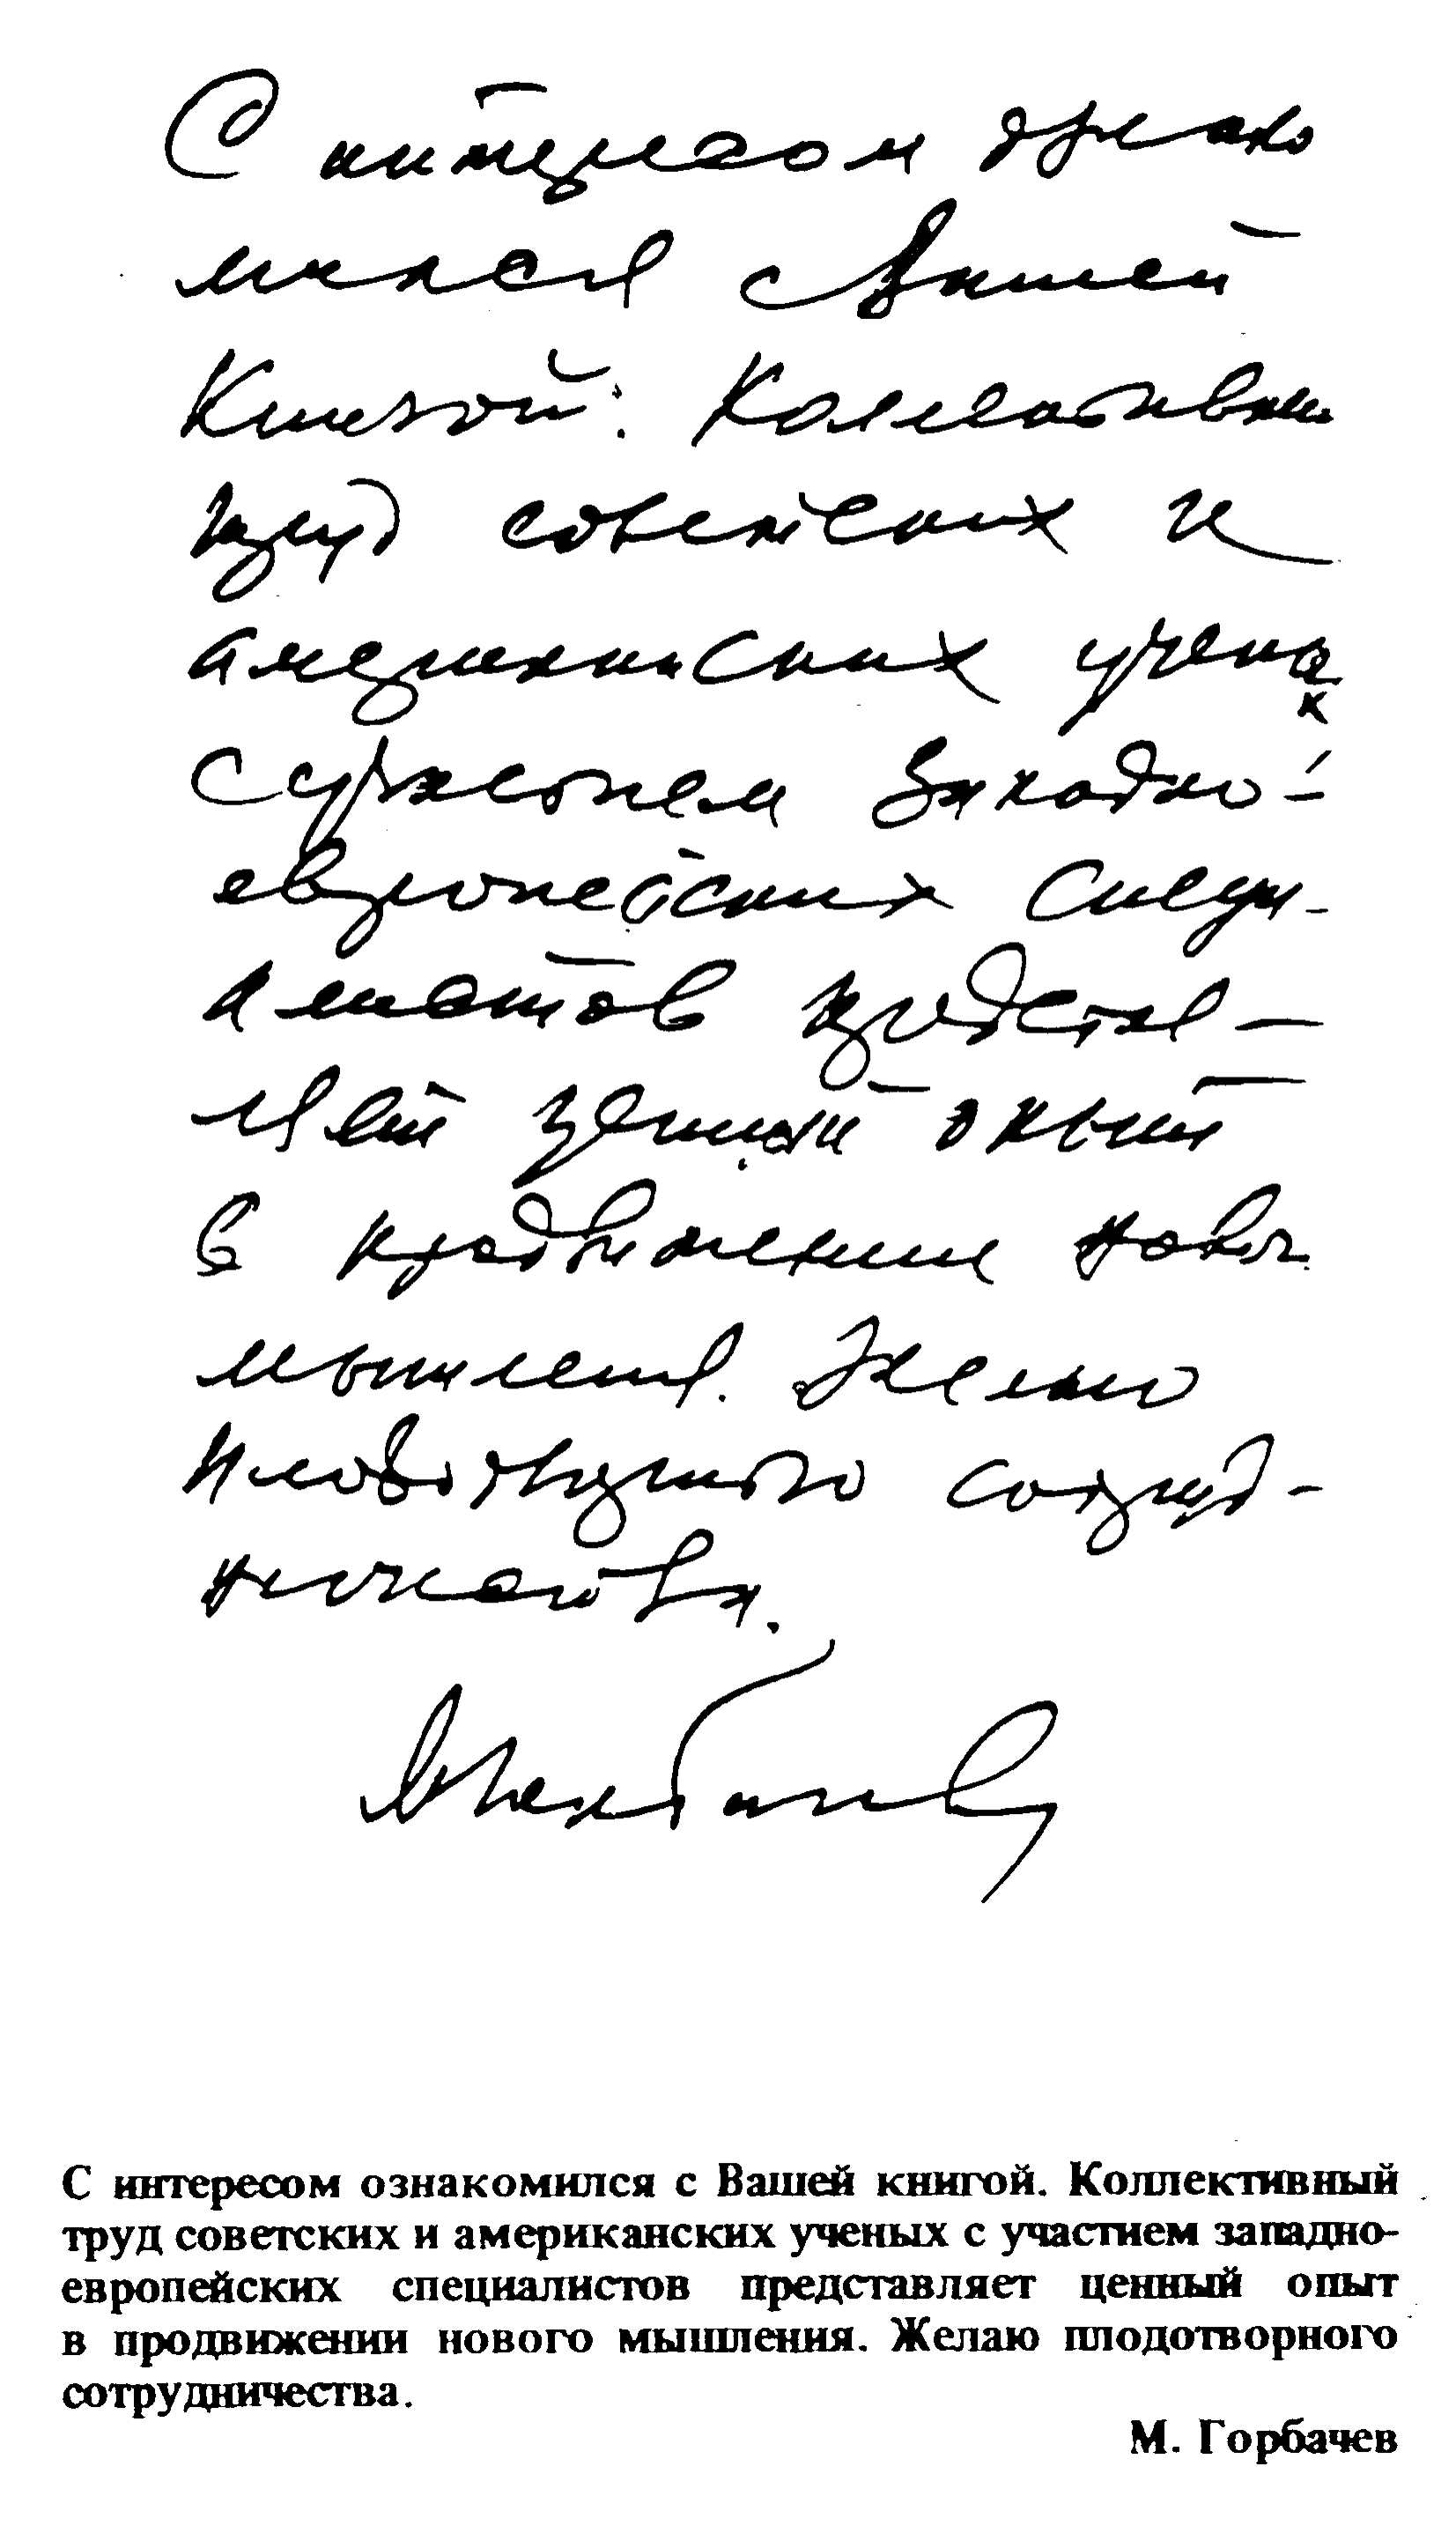 С интересом ознако
мился с Вашей
книгой. Коллективный
труд советских и
американских ученых
с участием западно-
европейских специ-
алистов представ-
ляет ценный опыт
в продвижении нового
мышления. Желаю
плодотворного сотруд-
ничества.
М Горбачев
С интересом ознакомился с Вашей книгой. Коллективный
труд советских и американских ученых с участием западно-
европейских специалистов представляет ценный опыт
в продвижении нового мышления. Желаю плодотворного
сотрудничества.
М. Горбачев